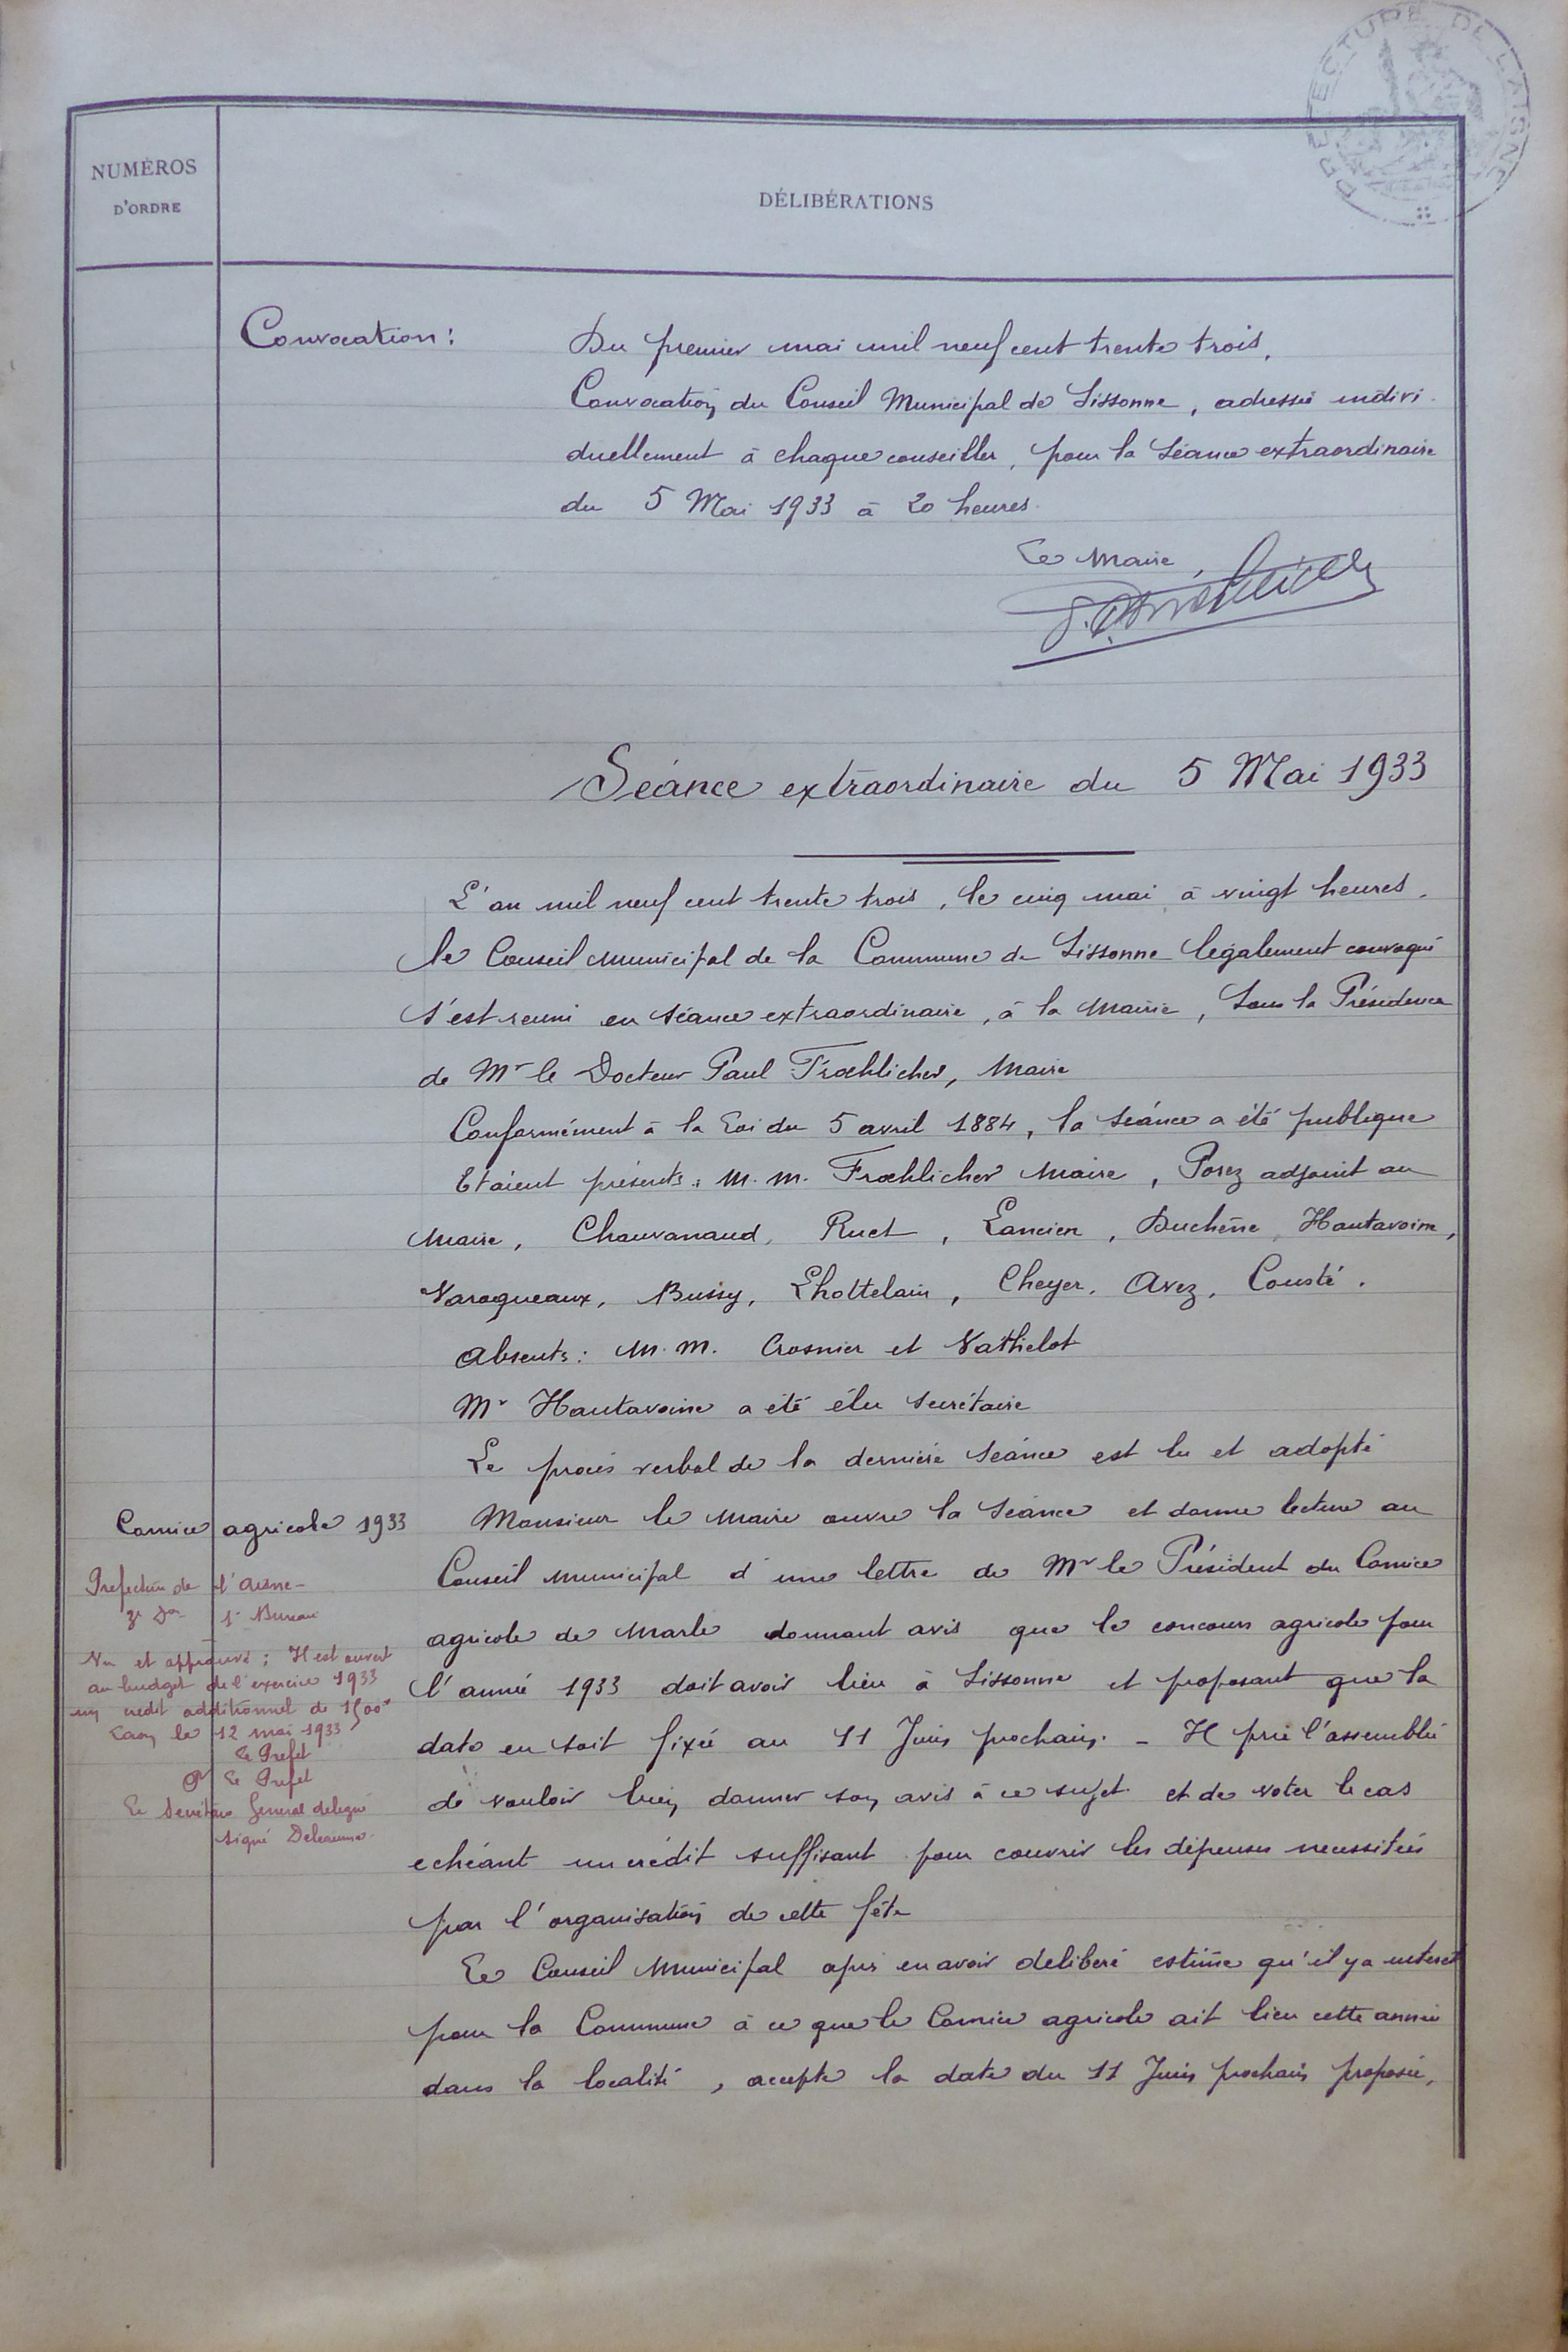 PRÉFECTURE DE L'AISNE
NUMÉROS
D'ORDRE
DÉLIBÉRATIONS
Convocation :
Du premier mai mil neuf cent trente trois,
Convocation du Conseil Municipal de Sissonne, adressée indivi-
duellement à chaque conseiller, pour la séance extraordinaire
du 5 Mai 1933 à 20 heures.
Le Maire,
Séance extraordinaire du 5 Mai 1933
L'an mil neuf cent trente trois, le cinq mai à vingt heures.
le Conseil Municipal de la Commune de Sissonne légalement convoqué
s'est reuni en séance extraordinaire, à la Mairie, sous la Présidence
de Mr le Docteur Paul Froehlicher, Maire
Conformément à la Loi du 5 avril 1884, la séance a été publique
Etaient présents : M. M. Froehlicher Maire, Porez adjoint au
Maire, Chauvanaud, Ruet, Lancien, Duchêne, Hautavoine,
Varoqueaux, Bussy, Lhottelain, Cheyer, Avez, Cousté.
Absents : M. M. Crosnier et Vathelot
Mr Hautavoine a été élu secrétaire
Le procès verbal de la dernière séance est lu et adopté
Comice agricole 1933
Monsieur le Maire ouvre la séance et donne lecture au
Conseil Municipal d'une lettre de Mr le Président du Comice
agricole de Marle donnant avis que le concours agricole pour
l'année 1933 doit avoir lieu à Sissonne et proposant que la
date en soit fixée au 11 Juin prochain. - Il prie l'assemblée
de vouloir bien donner son avis à ce sujet et de voter le cas
echéant un crédit suffisant pour couvrir les dépenses necessitées
par l'organisation de cette fête
Le Conseil Municipal après en avoir délibéré estime qu'il y a interet
pour la Commune à ce que le Comice agricole ait lieu cette année
dans la localité, accepte la date du 11 Juin prochain proposée,
Prefecture de l'Aisne -
3e Don 1er Bureau
Vu et approuvé ; Il est ouvert
au budget de l'exercice 1933
un credit additionnel de 1500f
Laon le 12 mai 1933
Le Prefet
Pr Le Prefet
Le Secrétaire General delegué
signé